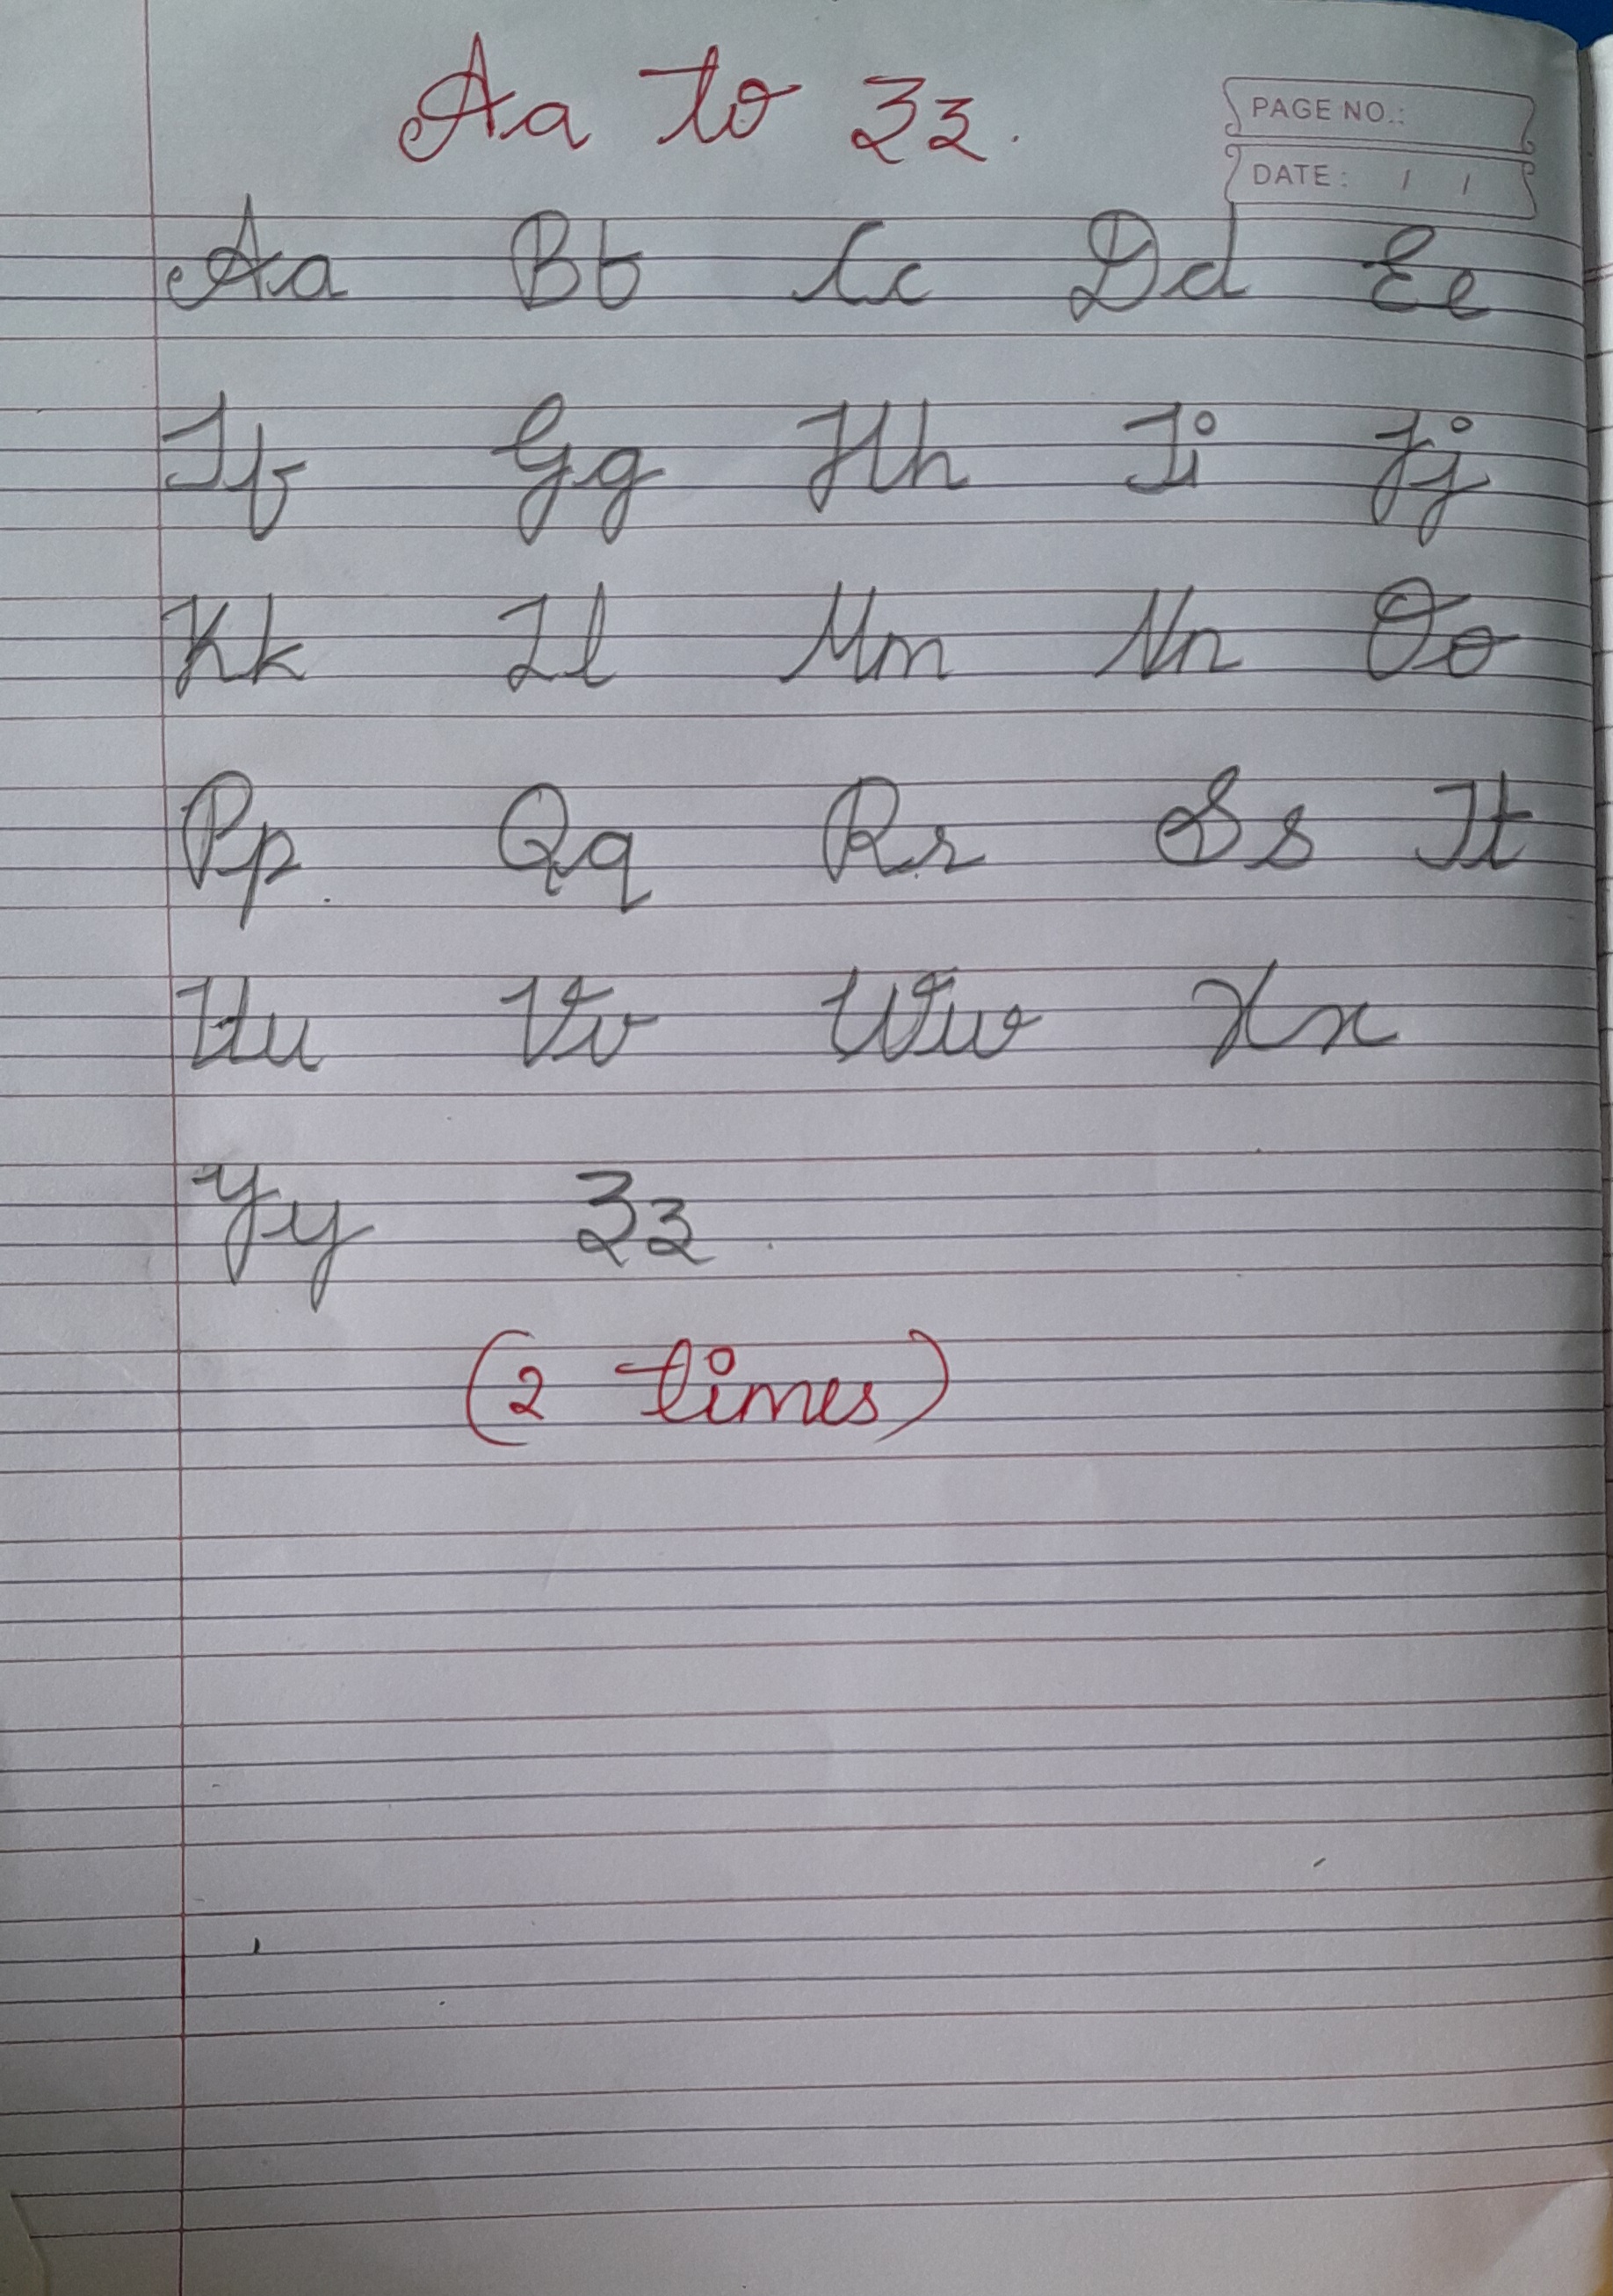 Aa to Zz.
PAGE NO.:
DATE: / /
Aa Bb Cc Dd Ee
Ff Gg Hh Ii Jj
Kk Ll Mm Nn Oo
Pp Qq Rr Ss Tt
Uu Vv Ww Xx
Yy Zz
(2 times)